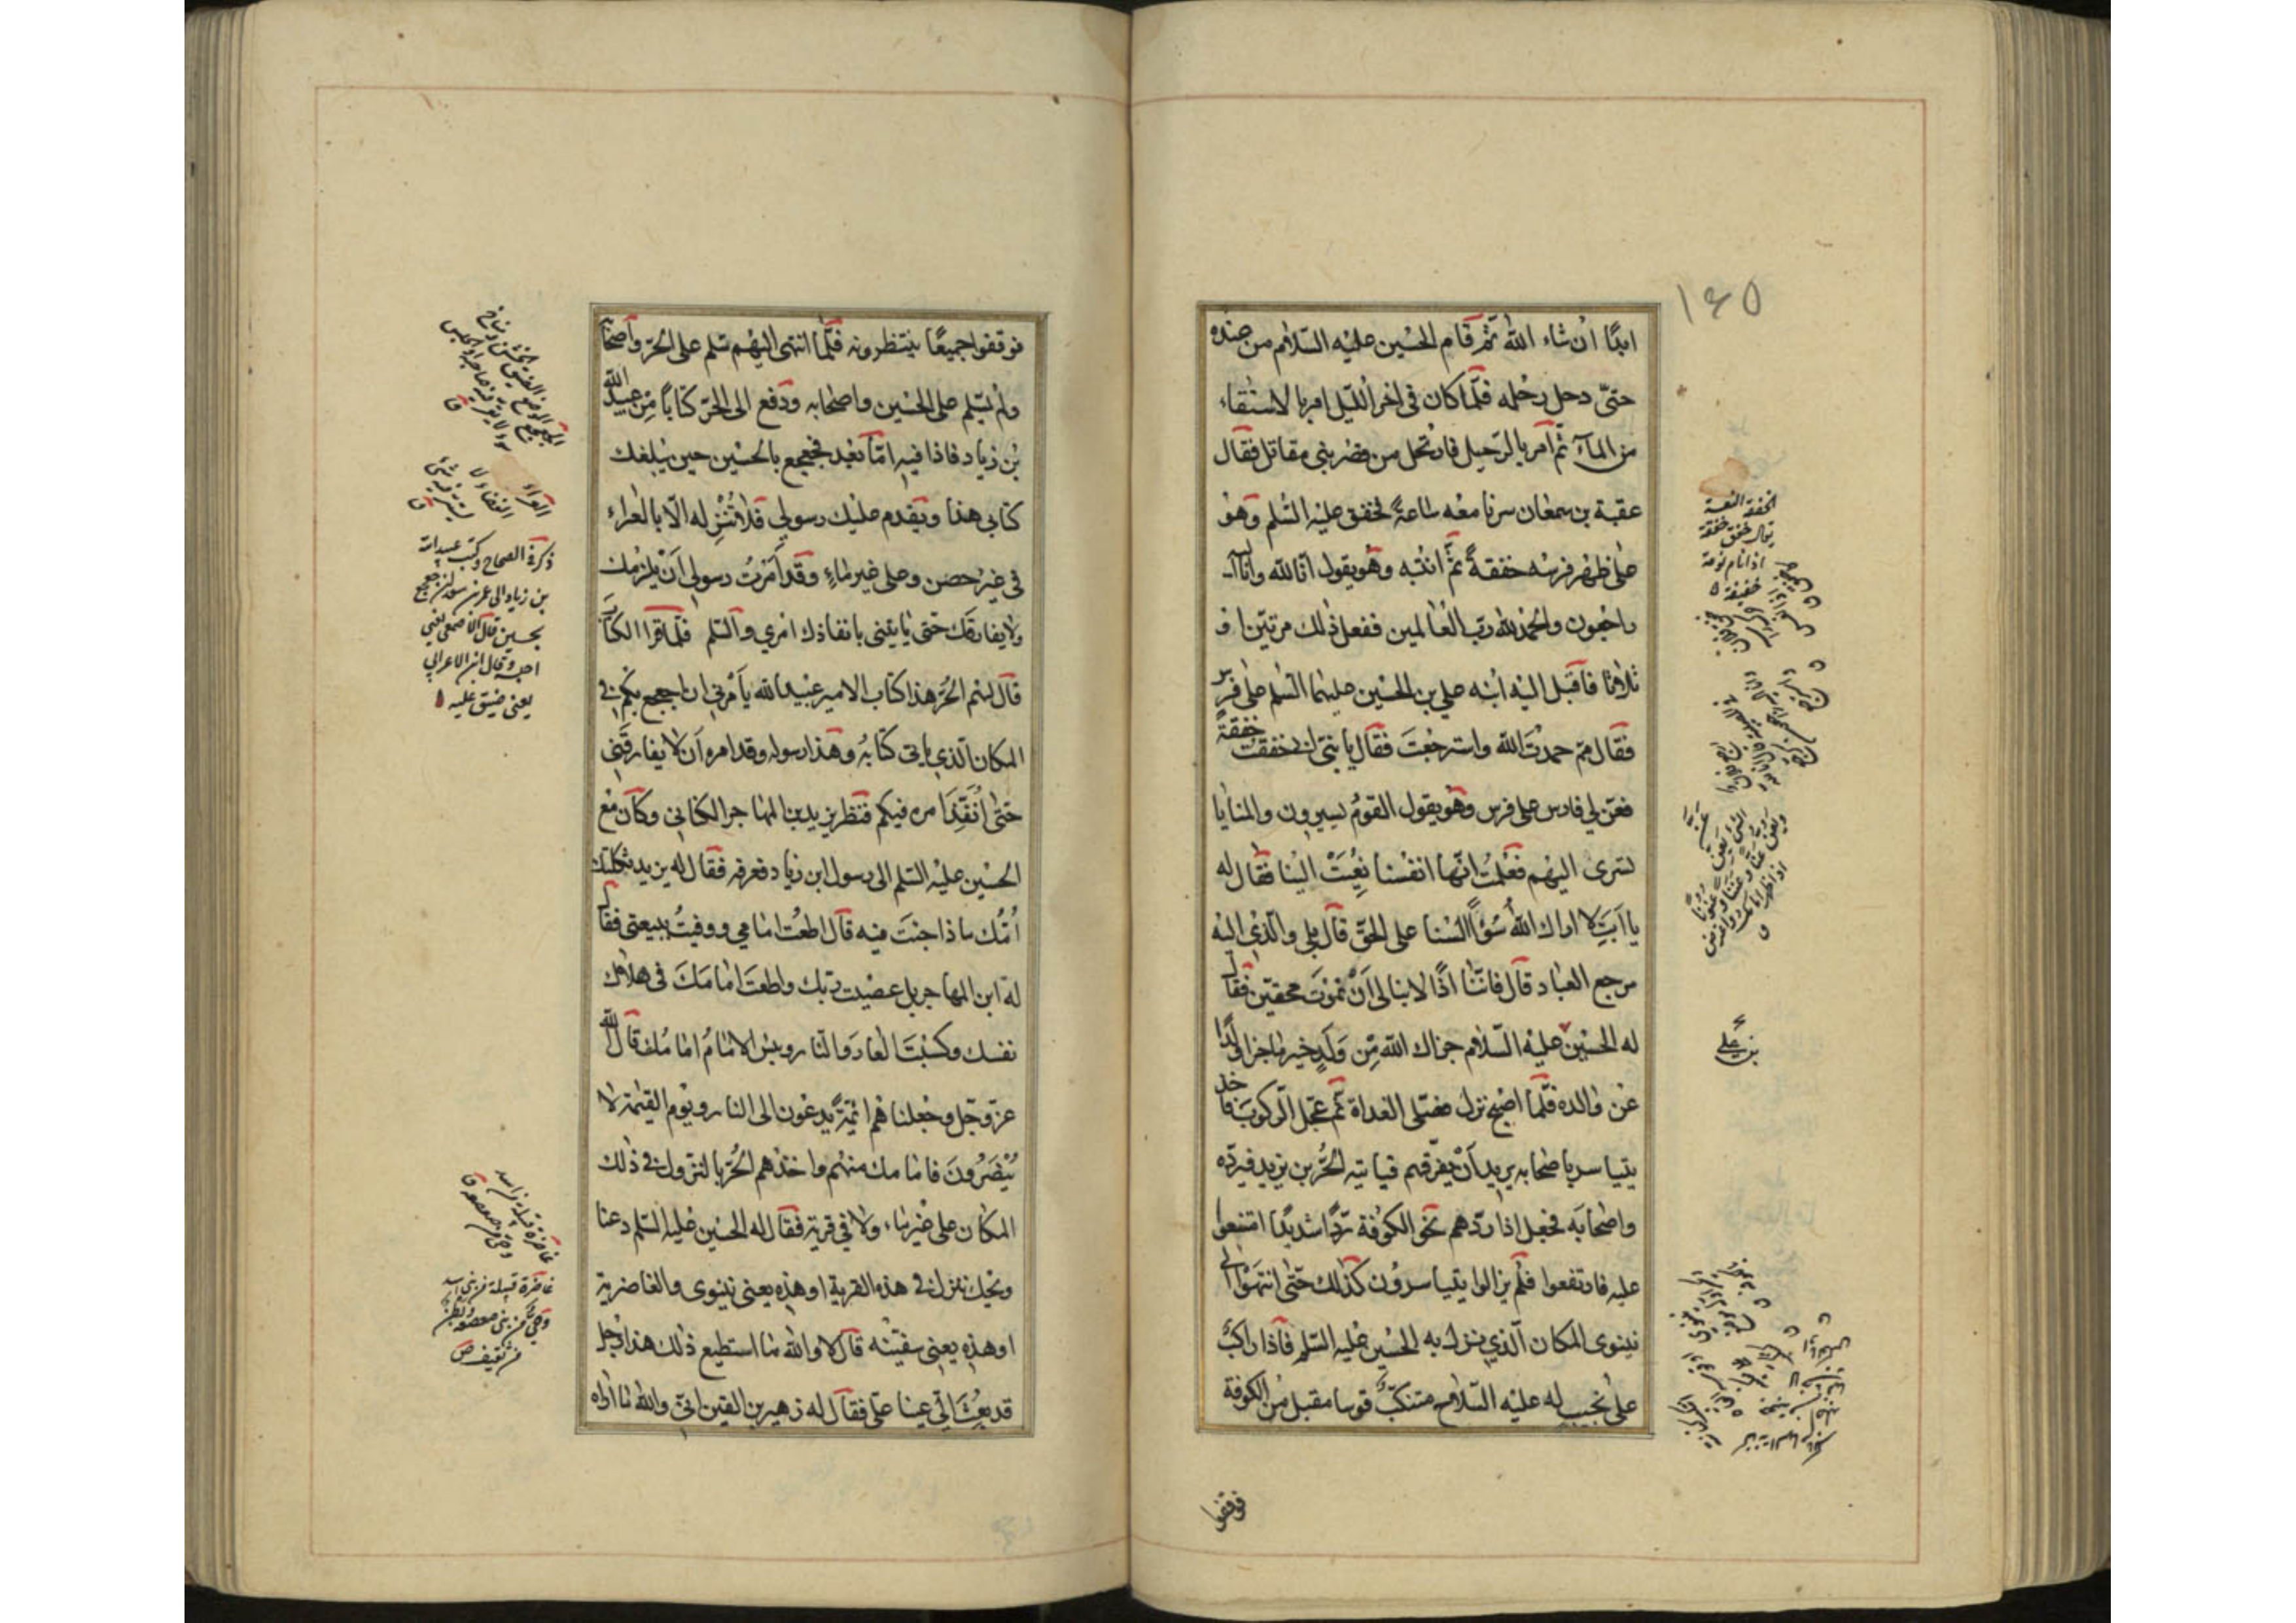 ١٤٥
ابدًا ان شاء الله ثم قام الحسين عليه السلام من عنده
حتّى دخل رحله فلمّا كان في اخر الليل امر بالاستقاء
من الماء ثم أمر بالرّحيل فارتحل من قصر بني مقاتل فقال
عقبة بن سمعان سرنا معه ساعةً فخفق عليه السّلم وهو
على ظهر فرسه خفقةً ثمّ انتبه وهو يقول انّا لله وانّا اليه
راجعون والحمد لله ربّ العالمين ففعل ذلك مرتين او
ثلاثا فأقبل اليه ابنه علي بن الحسين عليهما السّلم على فرس
فقال ممّ حمدت الله واسترجعت فقال يا بنيّ انّي خفقت خفقةً
فعنّ لي فارس على فرس وهو يقول القوم يسيرون والمنايا
تسرى اليهم فعلمت انّها انفسنا نعيت الينا فقال له
يا ابت لا اراك الله سوءًا السنا على الحقّ قال بلى والّذي اليه
مرجع العباد قال فانّنا اذًا لا نبالى أن نموت محقّين فقال
له الحسين عليه السّلام جزاك الله مِن ولدٍ خير ما جزا ولدًا
عن والده فلمّا اصبح نزل فصلّى الغداة ثم عجّل الركوب فاخذ
يتياسر باصحابه يريد أن يفرّقهم فياتيه الحرّ بن يزيد فيردّه
واصحابه فجعل اذا ردّهم نحو الكوفة ردًّا شديدًا امتنعوا
عليه فارتفعوا فلم يزالوا يتياسرون كذلك حتّى انتهوا الى
نينوى المكان الّذي نزل به الحسين عليه السّلم فاذا راكب
على نجيب له عليه السّلاح متنكّب قوسا مقبل من الكوفة
فوقفوا
الخفقة النعسة
يقال خفق خفقة
اذا نام نومة
خفيفة
بن علي
فوقفوا جميعًا ينتظرونه فلمّا انتهى اليهم سلّم على الحرّ وأصحابه
ولم يسلّم على الحسين واصحابه ودفع الى الحرّ كتابًا من عبيد الله
بن زياد فاذا فيه امّا بعد فجعجع بالحسين حين يبلغك
كتابي هذا ويقدم عليك رسولي فلا تُنزله الّا بالعراء
في غير حصن وعلى غير ماءٍ وقد أمرت رسولي أن يلزمك
ولا يفارقك حتى ياتيني بانفاذك امري والسّلم فلمّا قرأ الكتاب
قال لهم الحرّ هذا كتاب الامير عبيد الله يأمرني ان اجعجع بكم في
المكان الّذي ياتي كتابه وهذا رسوله وقد امره أن لا يفارقني
حتّى أنفّذ امره فيكم فنظر يزيد بن المهاجر الكناني وكان مع
الحسين عليه السّلم الى رسول ابن زياد فعرفه فقال له يزيد ثكلتك
أمّك ماذا جئت فيه قال اطعت امامي ووفيت ببيعتي فقال
له ابن المهاجر بل عصيت ربّك واطعت امامك في هلاك
نفسك وكسبت العار والنار وبئس الامام امامك قال الله
عزّ وجلّ وجعلناهم ائمّةً يدعون الى النار ويوم القيمة لا
ينصرون فامامك منهم واخذهم الحرّ بالنزول في ذلك
المكان على غير ماء ولا في قرية فقال له الحسين عليه السّلم دعنا
ويحك ننزل في هذه القرية او هذه يعني نينوى والغاضرية
او هذه يعني سفينه قال لا والله ما استطيع ذلك هذا رجل
قد بُعِث الىّ عينا علىّ فقال له زهير بن القين انّي والله ما اراه
ذكره في الصحاح وكتب عبيد الله
بن زياد الى عمر بن سعد ان جعجع
بحسين قال الاصمعي يعني
احبسه وقال ابن الاعرابي
يعني ضيّق عليه
غاضرة قبيلة من بني اسد
وحيّ من بني صعصعة وبطن
من ثقيف ص